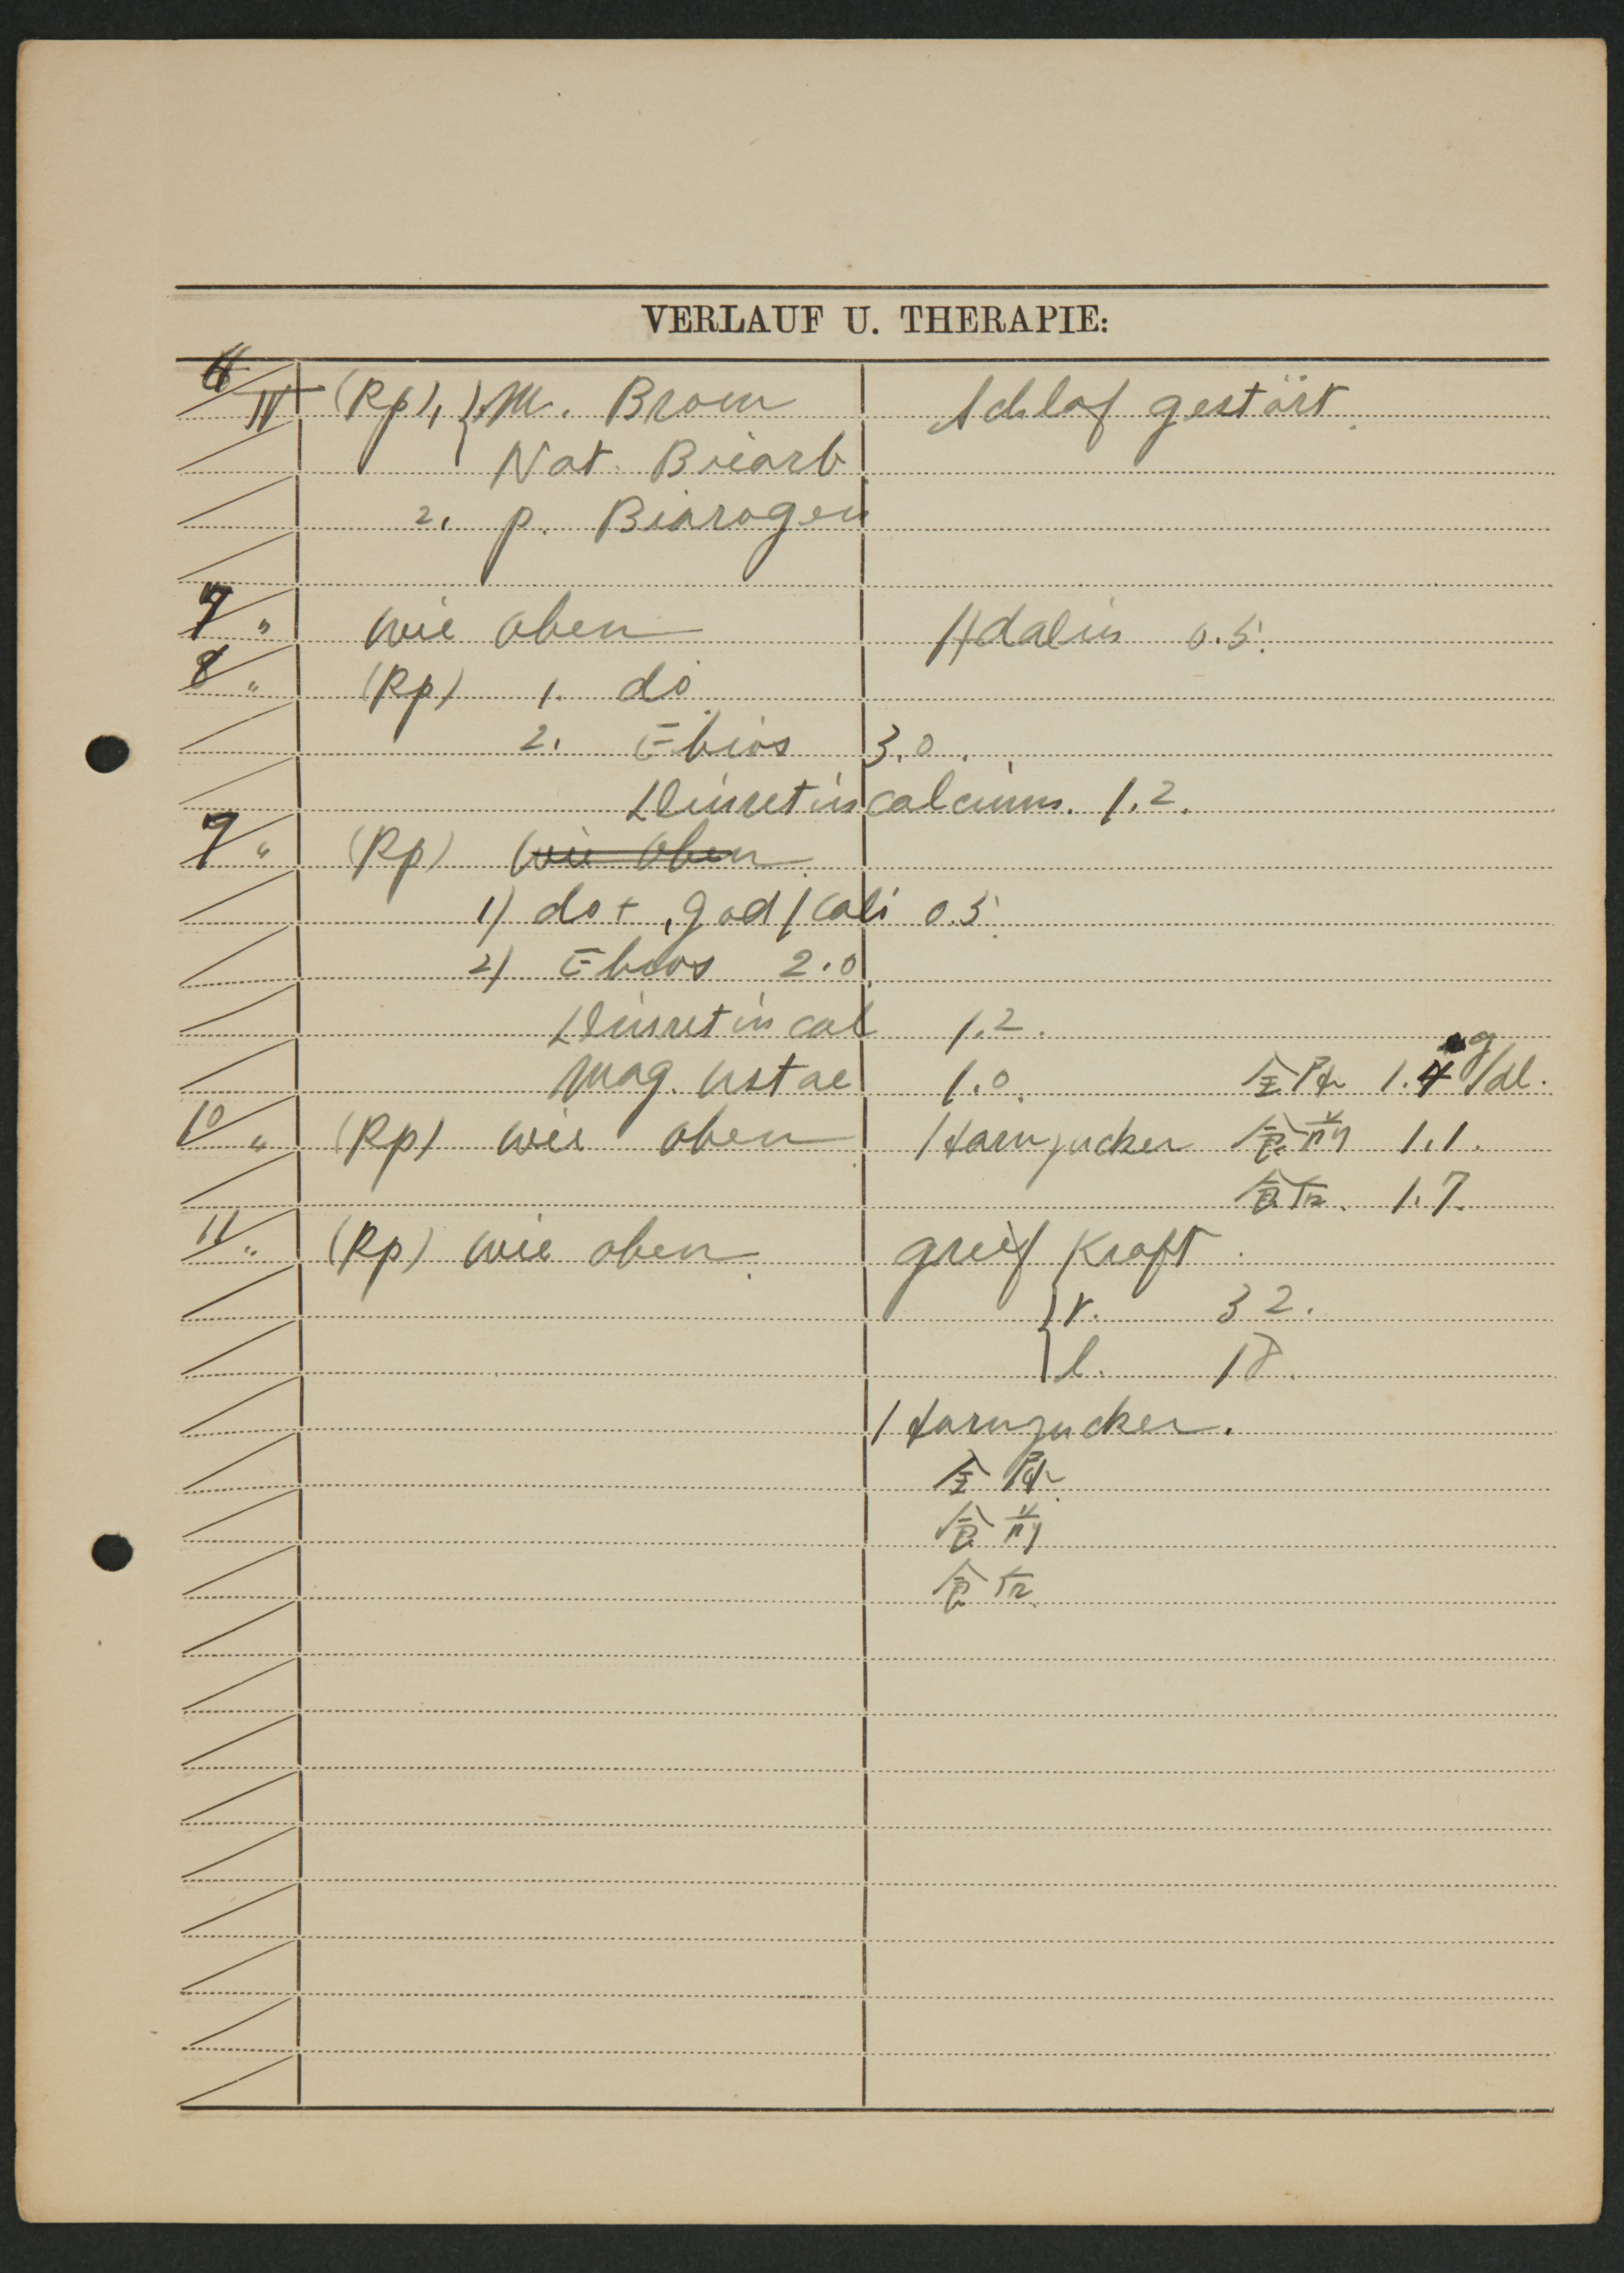 VERLAUF U. THERAPIE:
6/IV (Rp), 1. M. Brom Schlaf gestört.
Nat. Bicarb
2. p. Biarogen
7 〃 wie oben Adalin 0.5.
8 〃 (Rp) 1. do.
2. Ebios 3.0.
Diuretin calcium. 1.2.
9 〃 (Rp) wie oben.
1) do + Jod Kali 0.5.
2) Ebios 2.0.
Diuretin cal 1.2.
Mag. ustae 1.0. 全体 1.4 g/dl.
10 〃 (Rp) wie oben. Harnzucker 食前 1.1.
食后. 1.7.
11 〃 (Rp) wie oben. greif Kraft.
r. 32.
l. 18.
Harnzucker.
全体.
食前
食后.